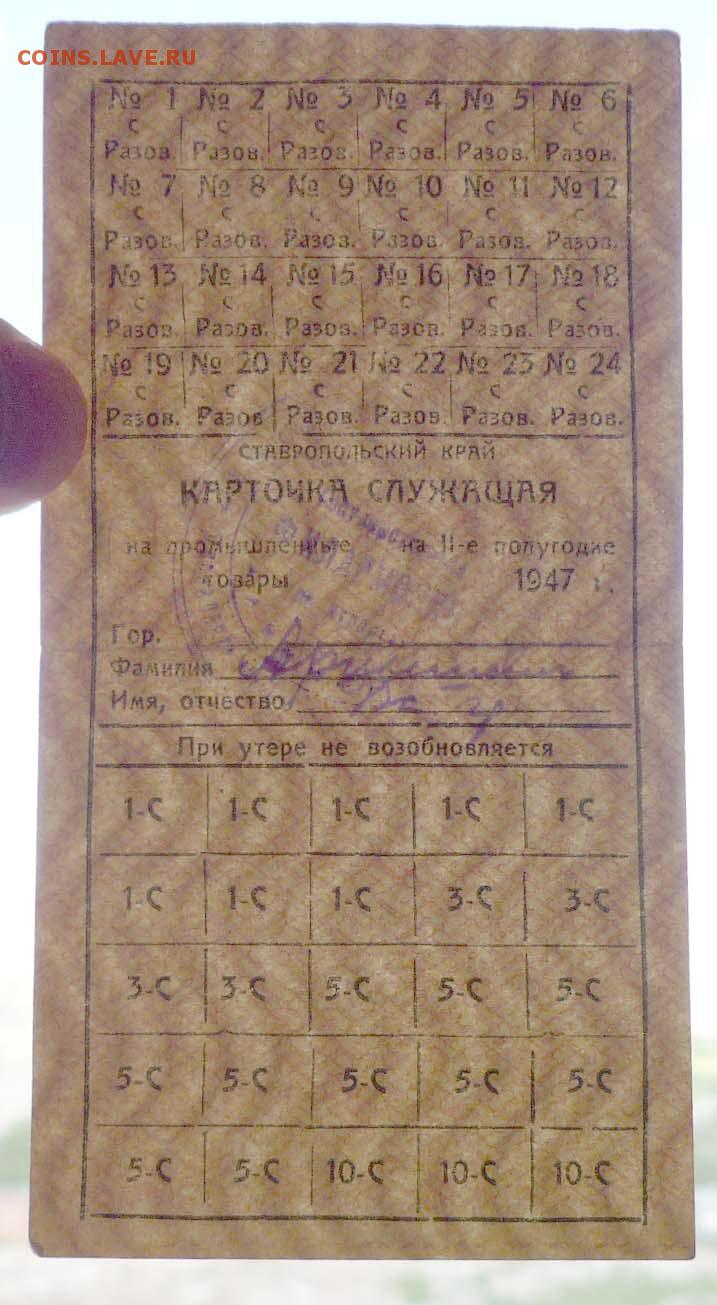 COINS.LAVE.RU
№ 1 № 2 № 3 № 4 № 5 № 6
С С С С С С
Разов. Разов. Разов. Разов. Разов. Разов.
№ 7 № 8 № 9 № 10 № 11 № 12
С С С С С С
Разов. Разов. Разов. Разов. Разов. Разов.
№ 13 № 14 № 15 № 16 № 17 № 18
С С С С С С
Разов. Разов. Разов. Разов. Разов. Разов.
№ 19 № 20 № 21 № 22 № 23 № 24
С С С С С С
Разов. Разов Разов. Разов. Разов. Разов.
СТАВРОПОЛЬСКИЙ КРАЙ
КАРТОЧКА СЛУЖАЩАЯ
на промышленные на II-е полугодие
товары 1947 г.
Гор.
Фамилия
Имя, отчество
При утере не возобновляется
1-С 1-С 1-С 1-С 1-С
1-С 1-С 1-С 3-С 3-С
3-С 3-С 5-С 5-С 5-С
5-С 5-С 5-С 5-С 5-С
5-С 5-С 10-С 10-С 10-С